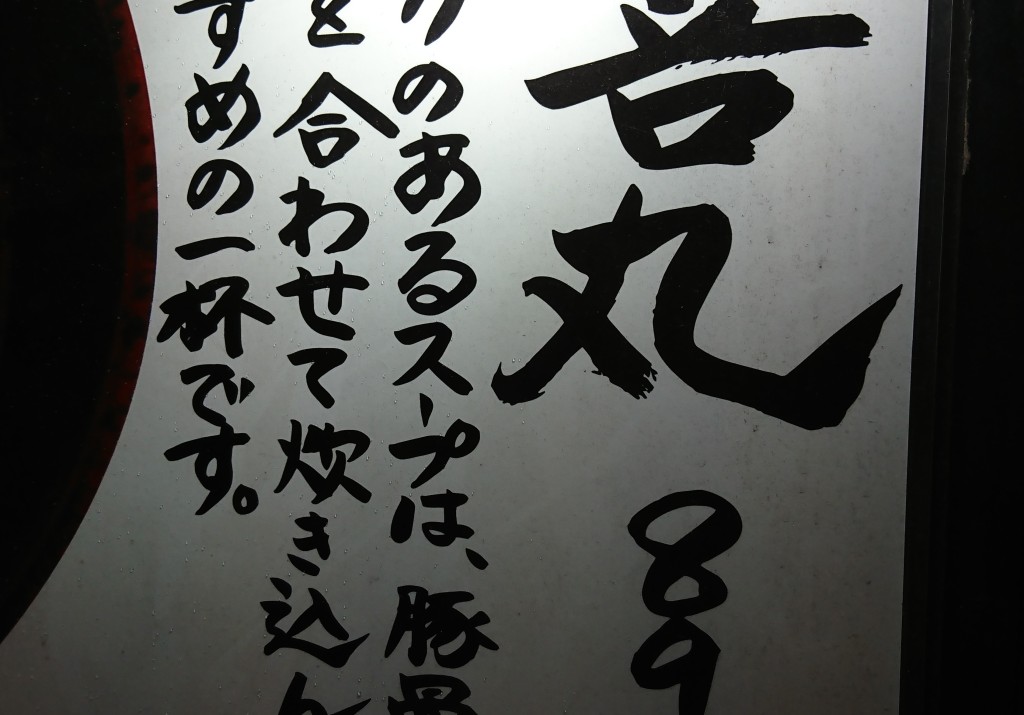 丸 89
のあるスープは、豚骨
を合わせて炊き込ん
すめの一杯です。